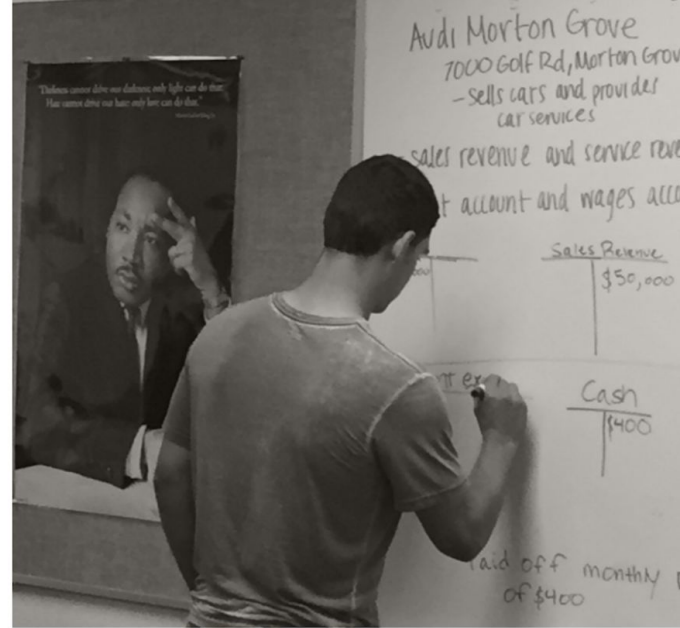 "Darkness cannot drive out darkness; only light can do that.
Hate cannot drive out hate; only love can do that."
Audi Morton Grove
7000 Golf Rd, Morton Grov
- sells cars and provides
car services
sales revenue and service reve
t account and wages acco
Sales Revenue
$50,000
Cash
$400
aid off monthly
of $400